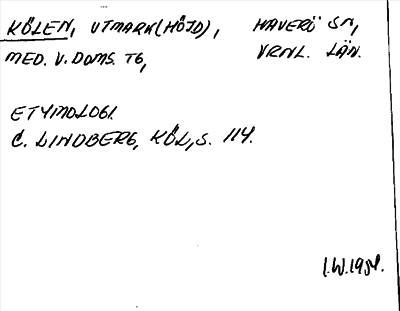 KÖLEN, UTMARK(HÖJD), HAVERÖ SN,
MED. V. DOMS. TG, VRNL. LÄN.
ETYMOLOGI.
C. LINDBERG, KÖL, S. 114.
I.W.1954.